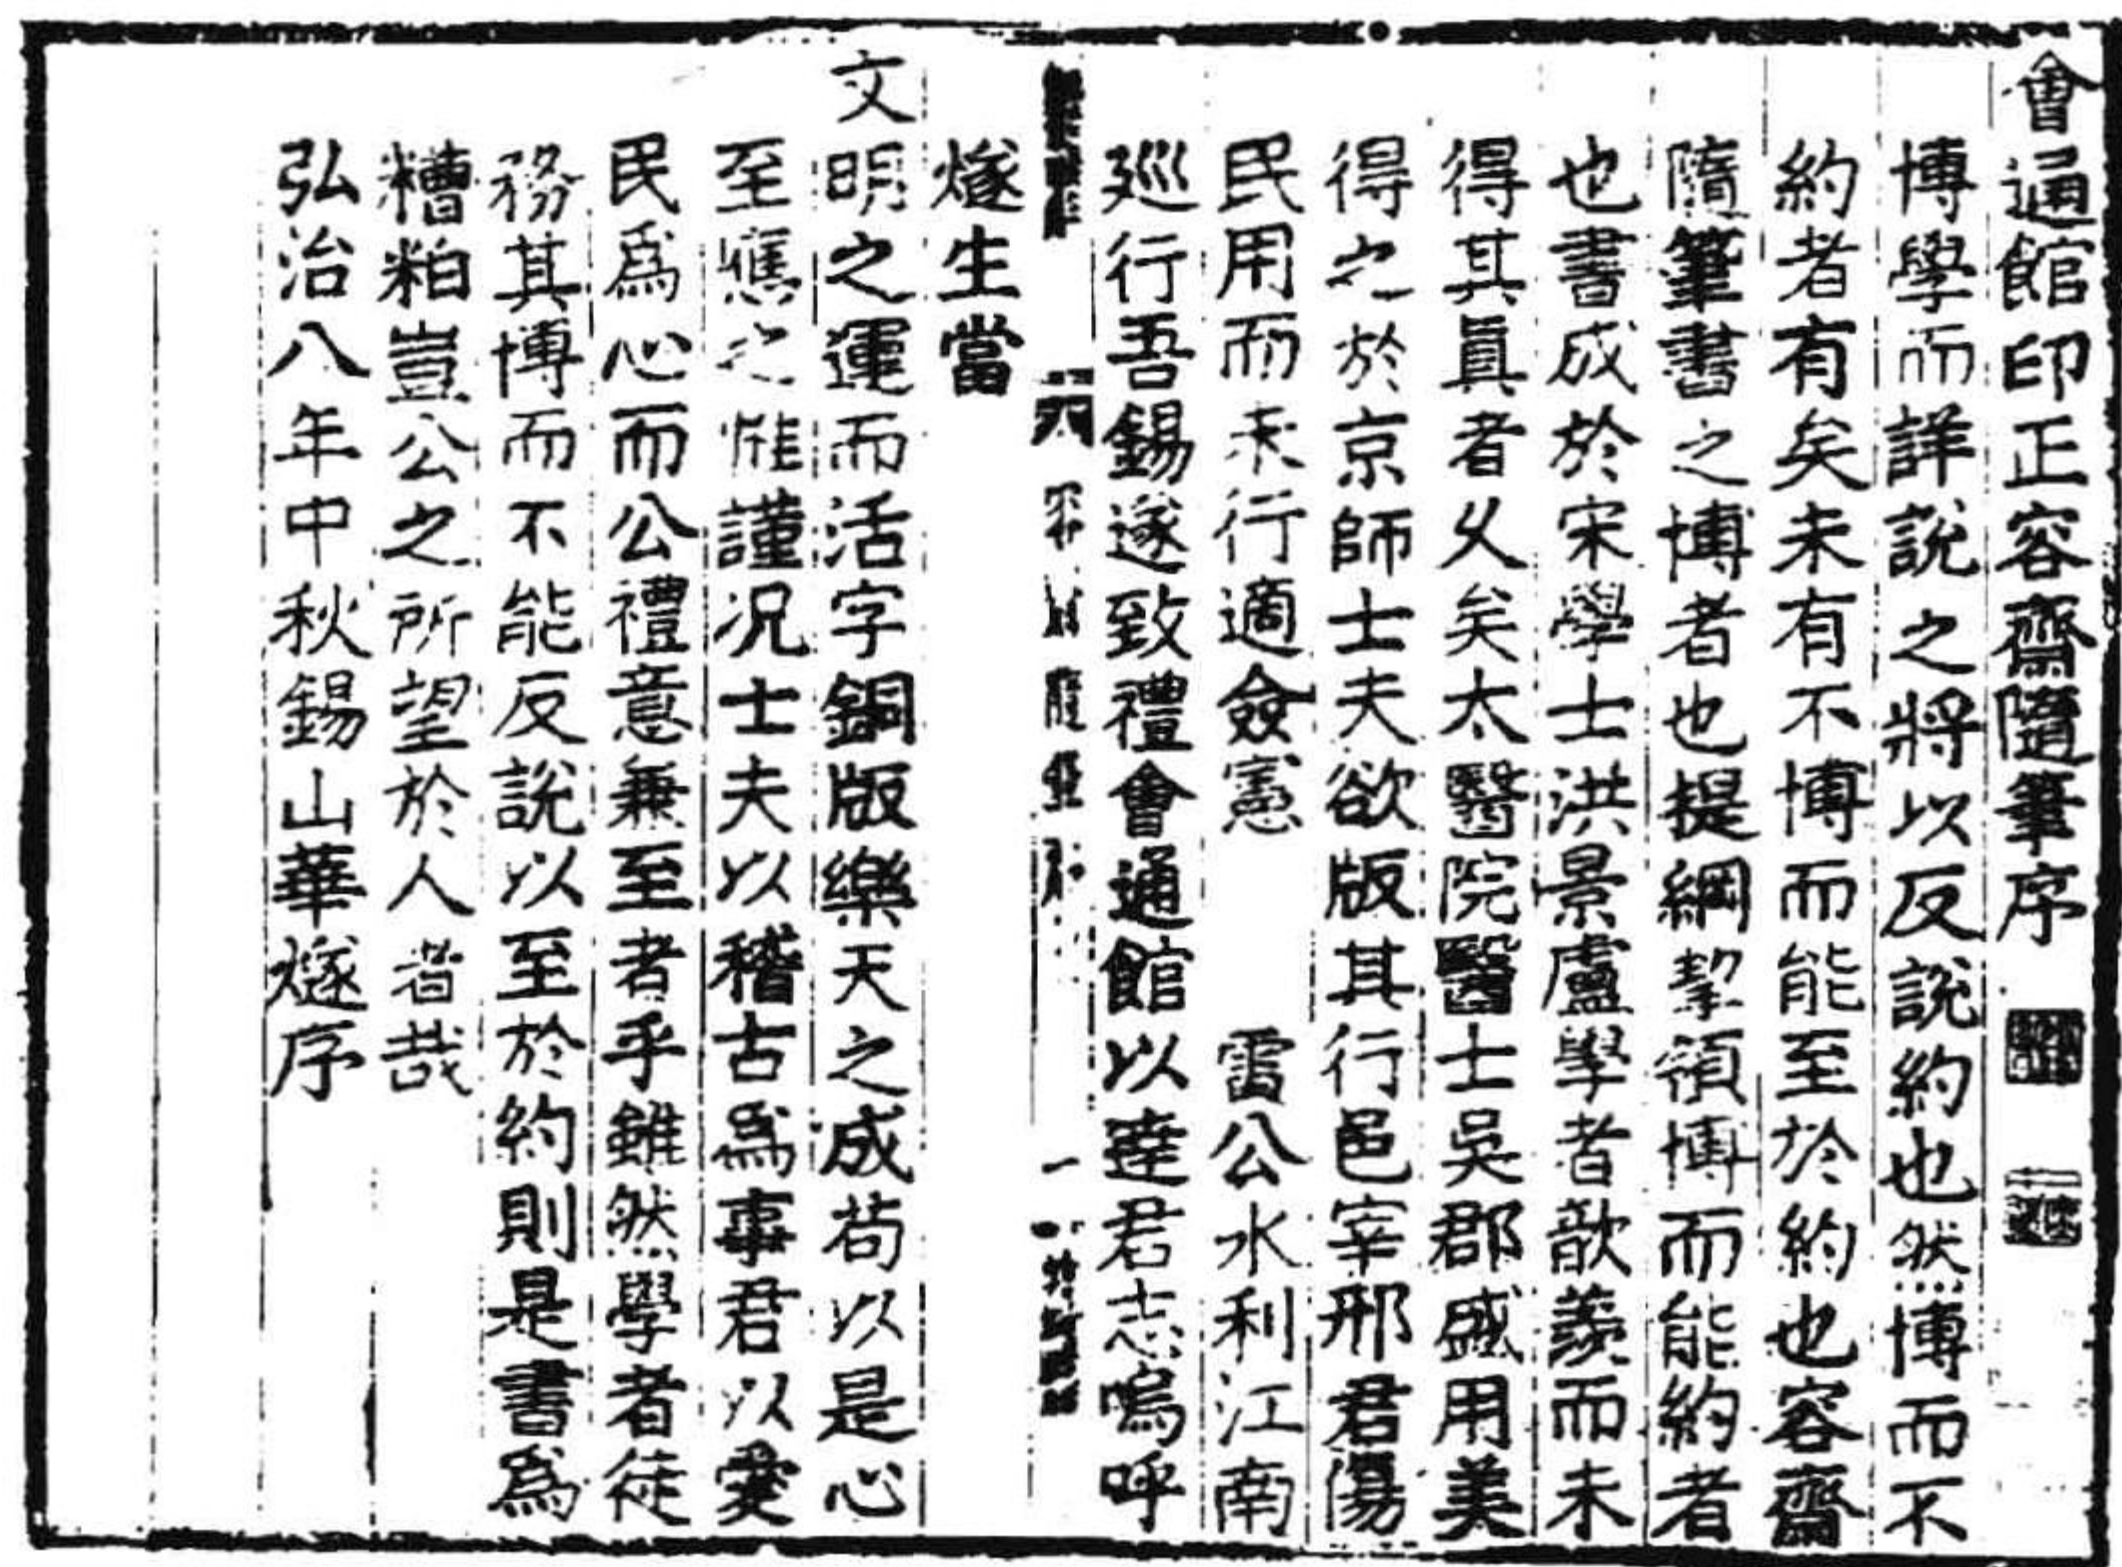 會通館印正容齋隨筆序
博學而詳說之將以反說約也然博而不
約者有矣未有不博而能至於約也容齋
隨筆書之博者也提綱挈領博而能約者
也書成於宋學士洪景盧學者歆羨而未
得其真者乆矣太醫院醫士吳郡盛用美
得之於京師士夫欲版其行邑宰邢君傷
民用而未行適僉憲 雷公水利江南
廵行吾錫遂致禮會通館以達君志嗚呼
燧生當
文明之運而活字銅版樂天之成苟以是心
至應之惟謹况士夫以稽古爲事君以愛
民爲心而公禮意兼至者乎雖然學者徒
務其博而不能反說以至於約則是書爲
糟粕豈公之所望於人者哉
弘治八年中秋錫山華燧序